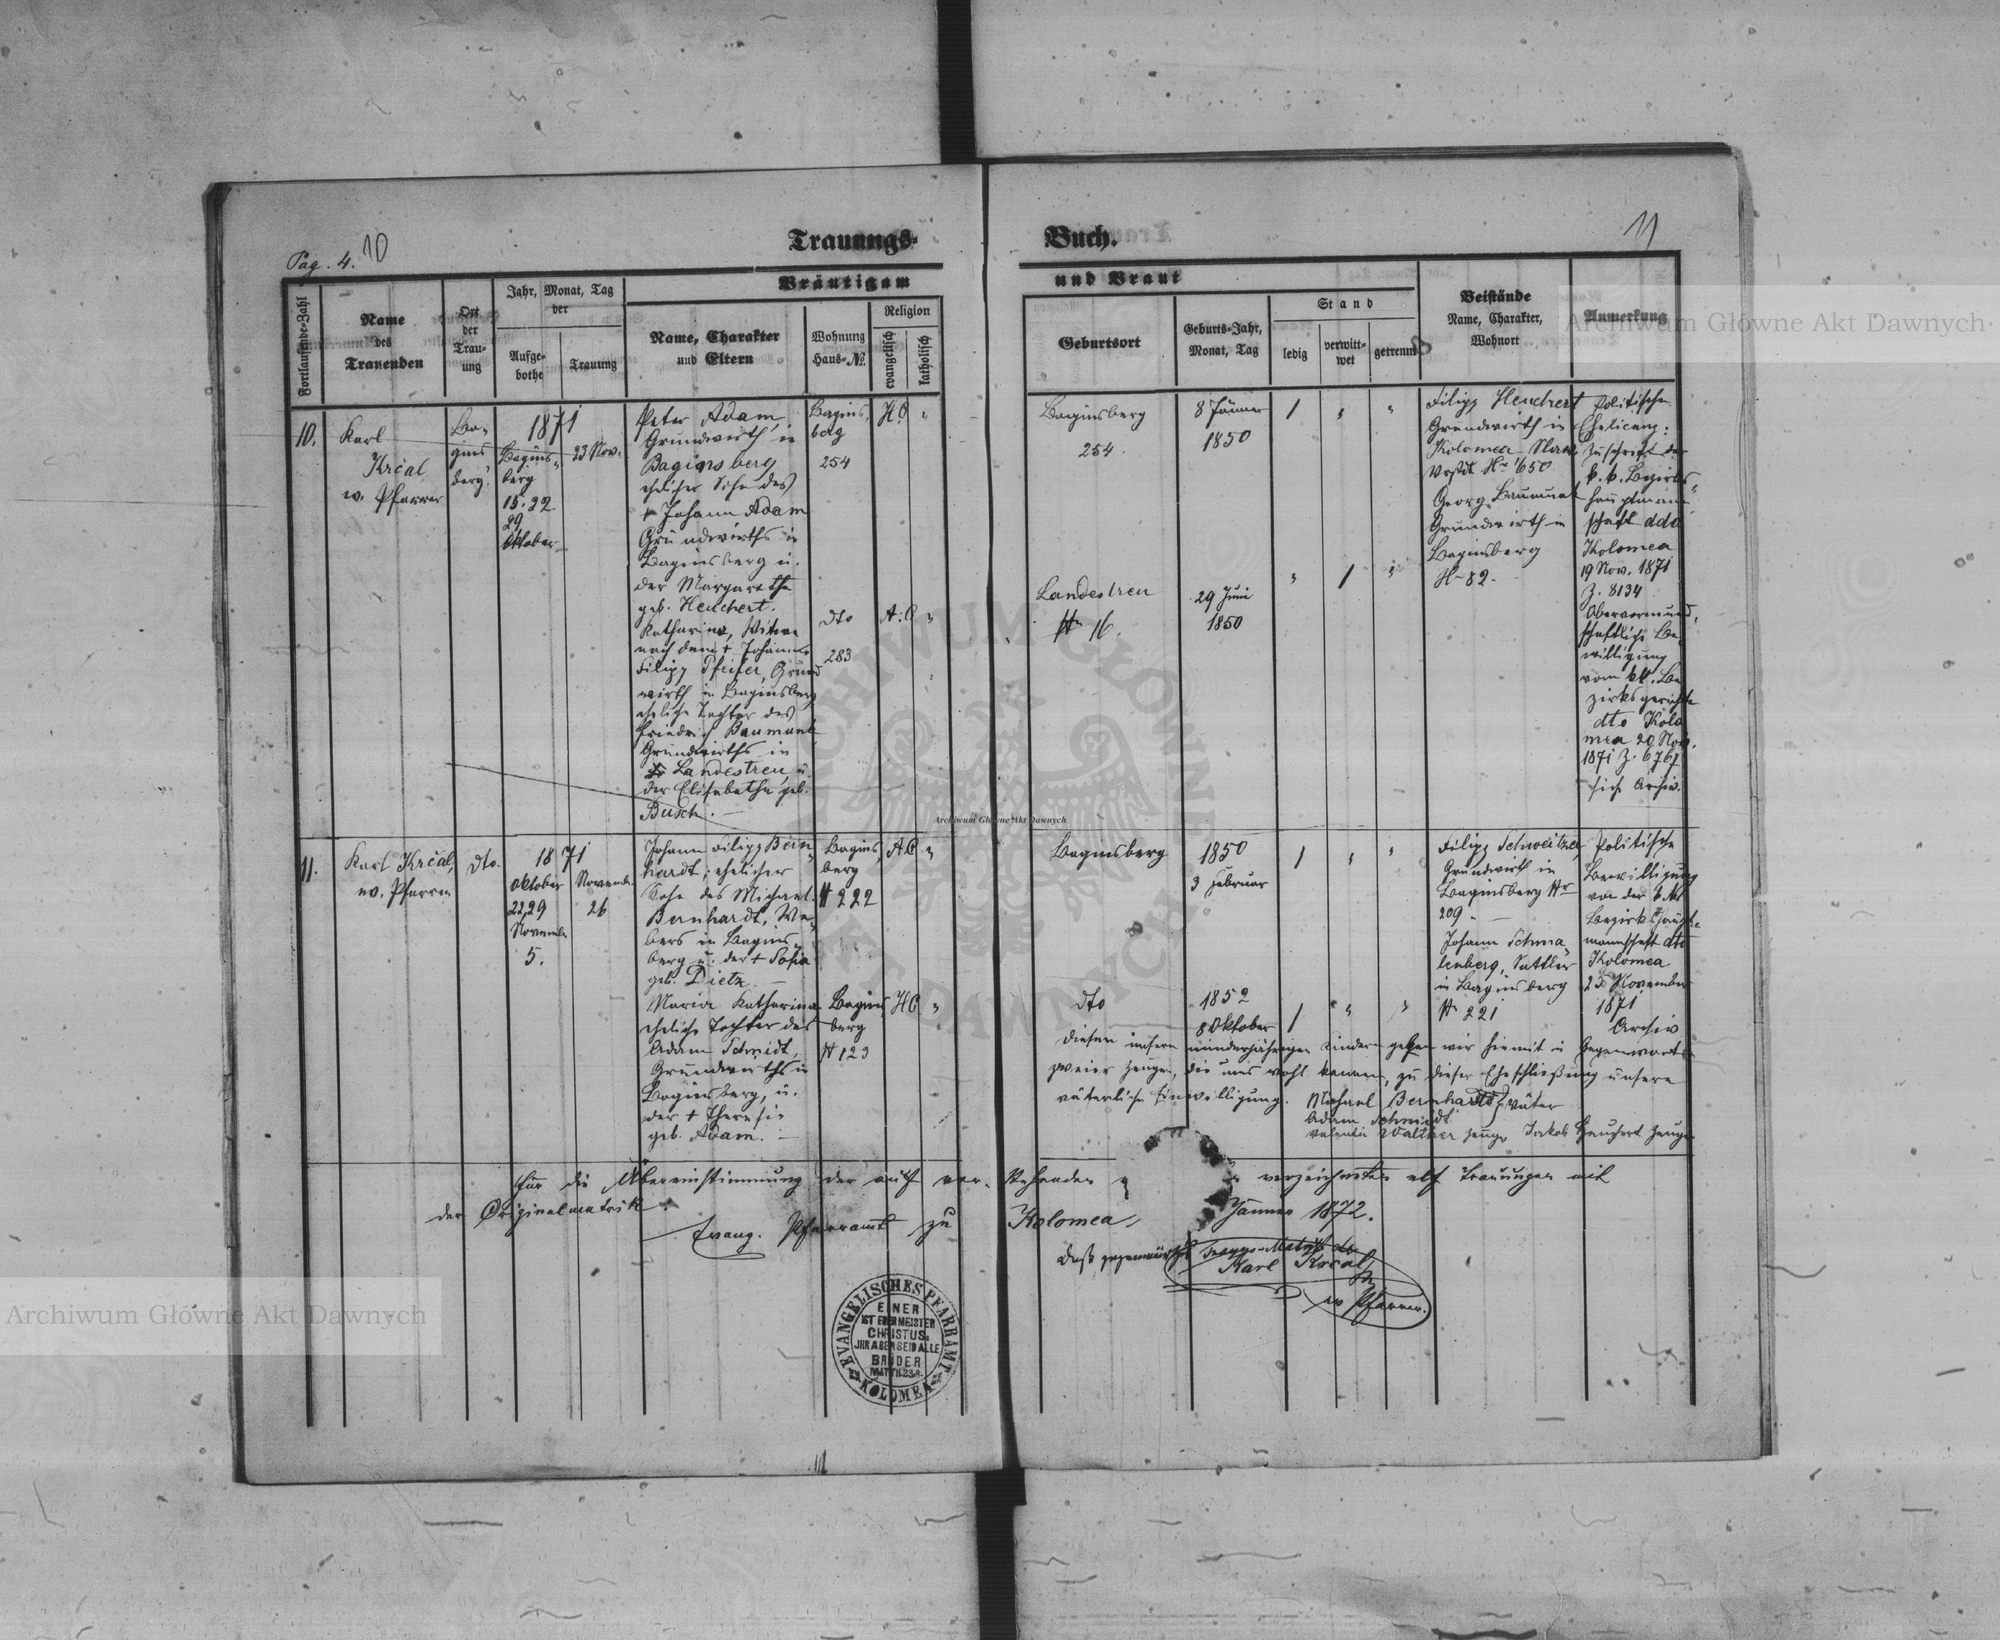 Pag. 4. 10
Trauungs-
Buch.
11
Bräutigam
und Braut
Fortlaufende-Zahl
Name
des
Trauenden
Ort
der
Trau-
ung
Jahr, Monat, Tag
der
Aufge-
bothe
Trauung
Name, Charakter
und Eltern
Wohnung
Haus-№.
Religion
evangelisch
katholisch
Geburtsort
Geburts-Jahr,
Monat, Tag
Stand
ledig
verwitt-
wet
getrennt
Beistände
Name, Charakter,
Wohnort
Anmerkung
10.
Karl
Krčal
ev. Pfarrer
Ba-
gins
berg.
1871
Bagins-
berg
15. 22
29
Oktober
23 Nov.
Peter Adam,
Grundwirth in
Baginsberg
ehelicher Sohn des
+ Johann Adam
Grundwirths in
Baginsberg u.
der Margarethe
geb. Heuchert.
Bagins
berg
254
H.C "
Baginsberg
254
8 Jänner
1850
1 " "
Katharina, Witwe
nach dem + Johann
Filipp Pfeifer, Grund
wirth in Baginsberg
eheliche Tochter des
Friedrich Baumunk
Grundwirths in
Landestreu u.
der Elisabetha geb.
Busch.
dto
283
A.C "
Landestreu
Hr 16.
29 Juni
1850
" 1 "
Filipp Heuchert
Grundwirth in
Kolomea
Hr 650
Georg Baumunk
Grundwirth in
Baginsberg
Hr 82.
Politische
Ehelicenz:
Zuschrift der
k. k. Bezirks-
hauptmann-
schaft ddo
Kolomea
19 Nov. 1871
Z. 8134
Obervormund-
schaftliche Be-
willigung
vom kk. Be
zirksgerichte
dto Kolo
mea 20 Nov.
1871 Z. 6767
sieh Archiv.
11.
Karl Krčal,
ev. Pfarrer
dto.
1871
Oktober
22, 29
November
5.
Novemb.
26
Johann Filipp Bern-
hardt, ehelicher
Sohn des Michael
Bernhardt, We-
bers in Bagins-
berg u. der + Sofia
geb. Dietz. —
Bagins
berg
H 222
A C "
Baginsberg
1850
3 Februar
1 " "
Maria Katharina
eheliche Tochter des
Adam Schmidt,
Grundwirths in
Baginsberg, u.
der + Theresie
geb. Adam. —
Bagins
berg
H 123
H C "
dto
1852
8 Oktober
1 " "
Filipp Schweitzer
Grundwirth in
Baginsberg Hr
209. —
Johann Schma-
lenberg, Sattler
in Baginsberg
Hr 221
Politische
Bewilligung
von der k. kk
Bezirkshaupt-
mannschaft dto
Kolomea
25 November
1871
Archiv
Diesen unsern minderjährigen Kindern geben wir hiemit in Gegenwart
zweier Zeugen, die uns wohl kennen, zu dieser Eheschließung unsere
väterliche Einwilligung. Michael Bernhardt Väter
Adam Schmidt
Valentin Walther Zeuge Jakob Heuchert Zeuge
Für die Übereinstimmung der auf vor- stehenden verzeichneten elf Trauungen mit
der Originalmatrik.
Evang. Pfarramt zu Kolomea, Jänner 1872.
Daß gegenwärtige
Karl Krčal
ev Pfarrer.
EVANGELISCHES PFARRAMT
KOLOMEA
EINER
IST EUER MEISTER
CHRISTUS,
IHR ABER SEID ALLE
BRÜDER
MATTH. 23. 8.
Archiwum Główne Akt Dawnych
Archiwum Główne Akt Dawnych
Archiwum Główne Akt Dawnych
ARCHIWUM GŁÓWNE AKT DAWNYCH